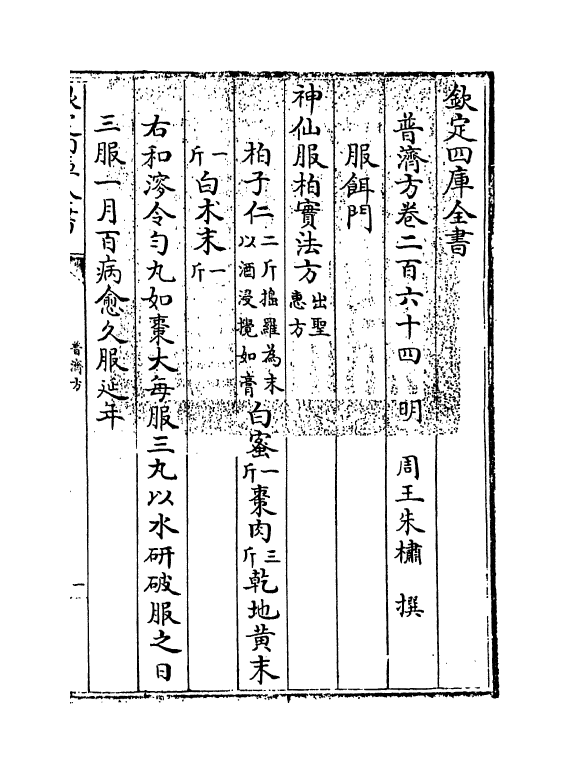 欽定四庫全書
普濟方卷二百六十四　明　周王朱橚　撰
服餌門
神仙服柏實法方出聖惠方
柏子仁二斤搗羅為末以酒浸攪如膏白蜜一斤棗肉三斤乾地黄末
一斤白术末一斤
右和溲令勻丸如棗大每服三丸以水研破服之日
三服一月百病愈久服延年
普濟方
一